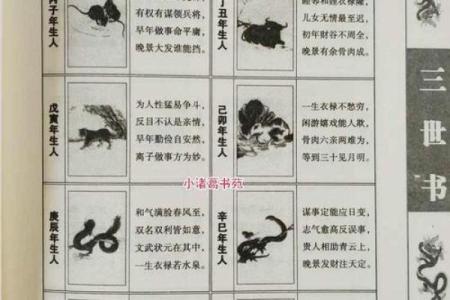 子年生人
有权有谋领兵将，
早年做事命平庸，
晚景大发谁能挡。
丑年生人
初年财谷不周全，
晚景有余骨肉成。
戊寅年生人
为人性猛易争斗，
反目不认是亲情，
早年勤俭自安然，
离子做事方为妙。
己卯年生人
一生衣禄不愁穷，
闲游嬉戏能人歌，
骨肉六亲两难为，
等到三十见月明。
小诸葛书苑
庚辰年生人
和气满脸春风至，
双名双利皆如意，
文武状元在其中，
一生衣禄若水泉。
辛巳年生人
谋事定能应日变，
志气愈高反误事，
贵人相助青云上，
晚景发财注天定。
三世书